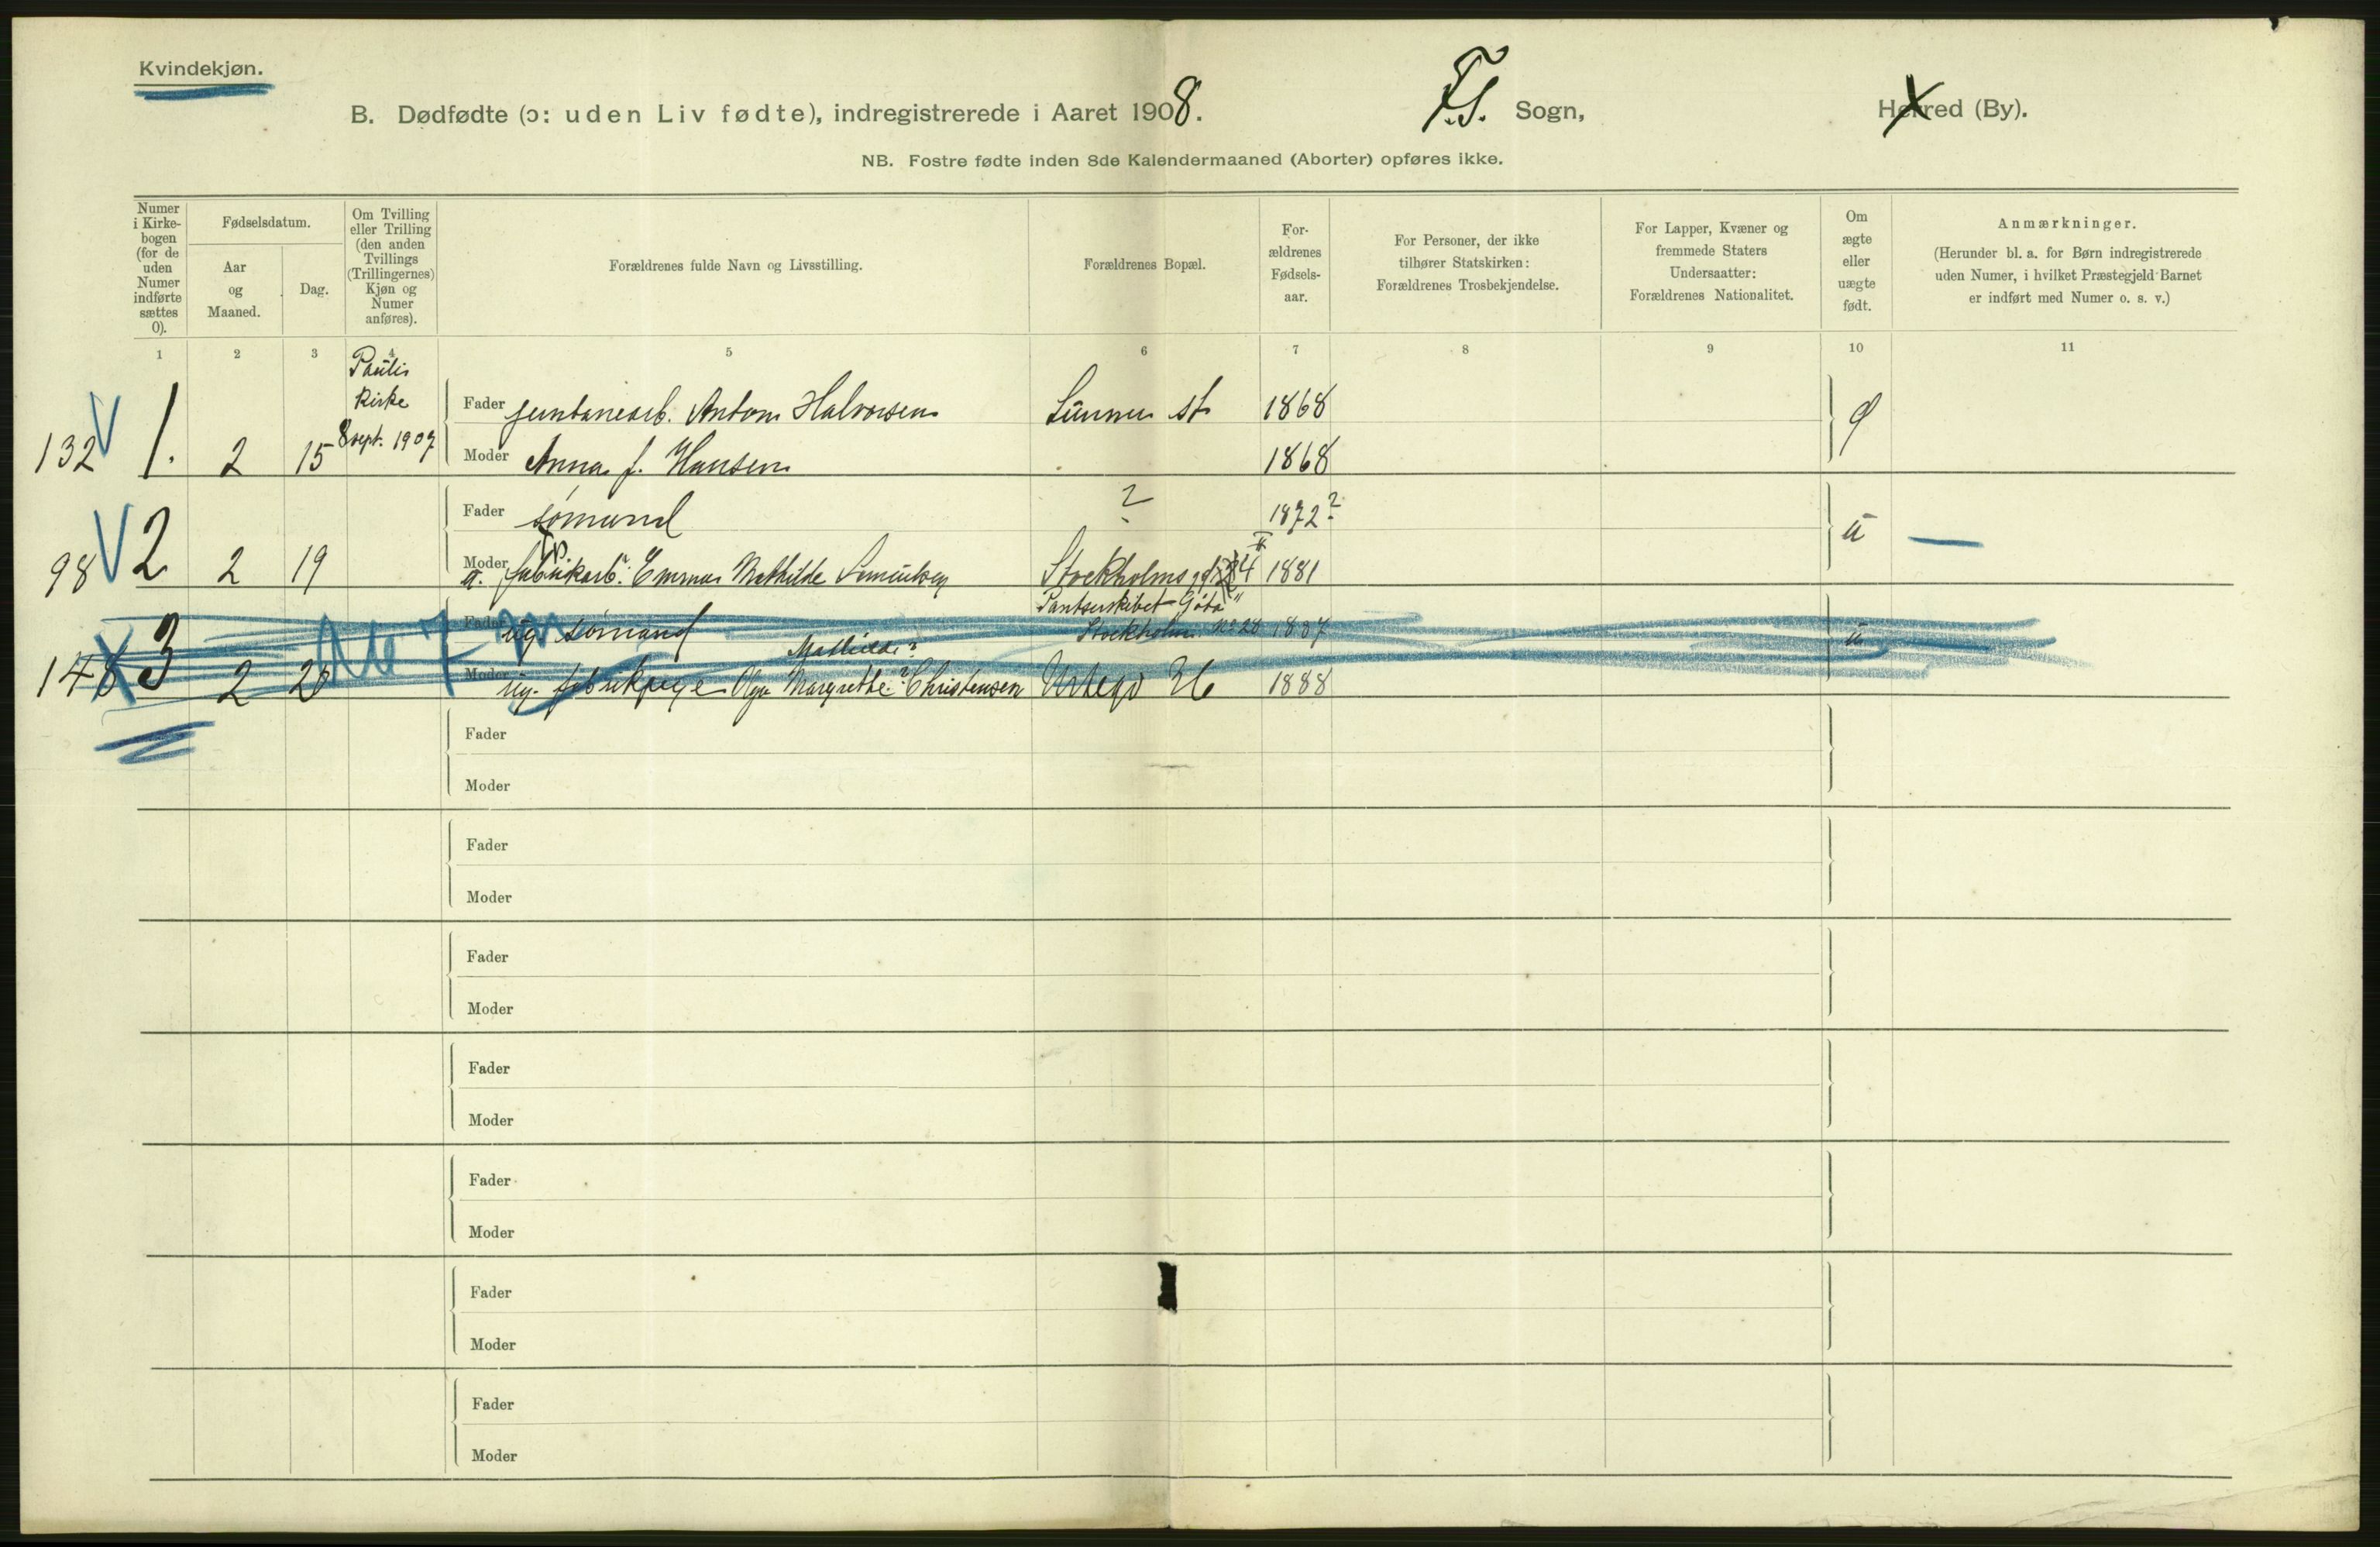 Kvindekjøn.
B. Dødfødte (ɔ: uden Liv fødte), indregistrerede i Aaret 1908. F.S. Sogn, Herred (By).
NB. Fostre fødte inden 8de Kalendermaaned (Aborter) opføres ikke.
Numer i Kirkebogen (for de uden Numer indførte sættes 0).
Fødselsdatum.
Aar og Maaned.
Dag.
Om Tvilling eller Trilling (den anden Tvillings (Trillingernes) Kjøn og Numer anføres).
Forældrenes fulde Navn og Livsstilling.
Forældrenes Bopæl.
Forældrenes Fødselsaar.
For Personer, der ikke tilhører Statskirken: Forældrenes Trosbekjendelse.
For Lapper, Kvæner og fremmede Staters Undersaatter: Forældrenes Nationalitet.
Om ægte eller uægte født.
Anmærkninger.
(Herunder bl. a. for Børn indregistrerede uden Numer, i hvilket Præstegjeld Barnet er indført med Numer o. s. v.)
1 2 3 4 5 6 7 8 9 10 11
Paulis
Kirke
Fader Anton Halvorsen 1868
132 V 1. 2 15 8 sept. 1907
Moder Anna f. Hansen 1868
Fader sømand ? 1872?
98 V 2 2 19 Moder fabrikarb. Emma Mathilde Stockholmsgd 4 1881 u —
Pantserskibet "Göta"
Fader ug sømand Stockholm No 28 1887 u
Mathilde?
148 X 3 2 20 Moder ug. fabrikpige Olga Margrethe? Christensen 1888
Fader
Moder
Fader
Moder
Fader
Moder
Fader
Moder
Fader
Moder
Fader
Moder
Fader
Moder